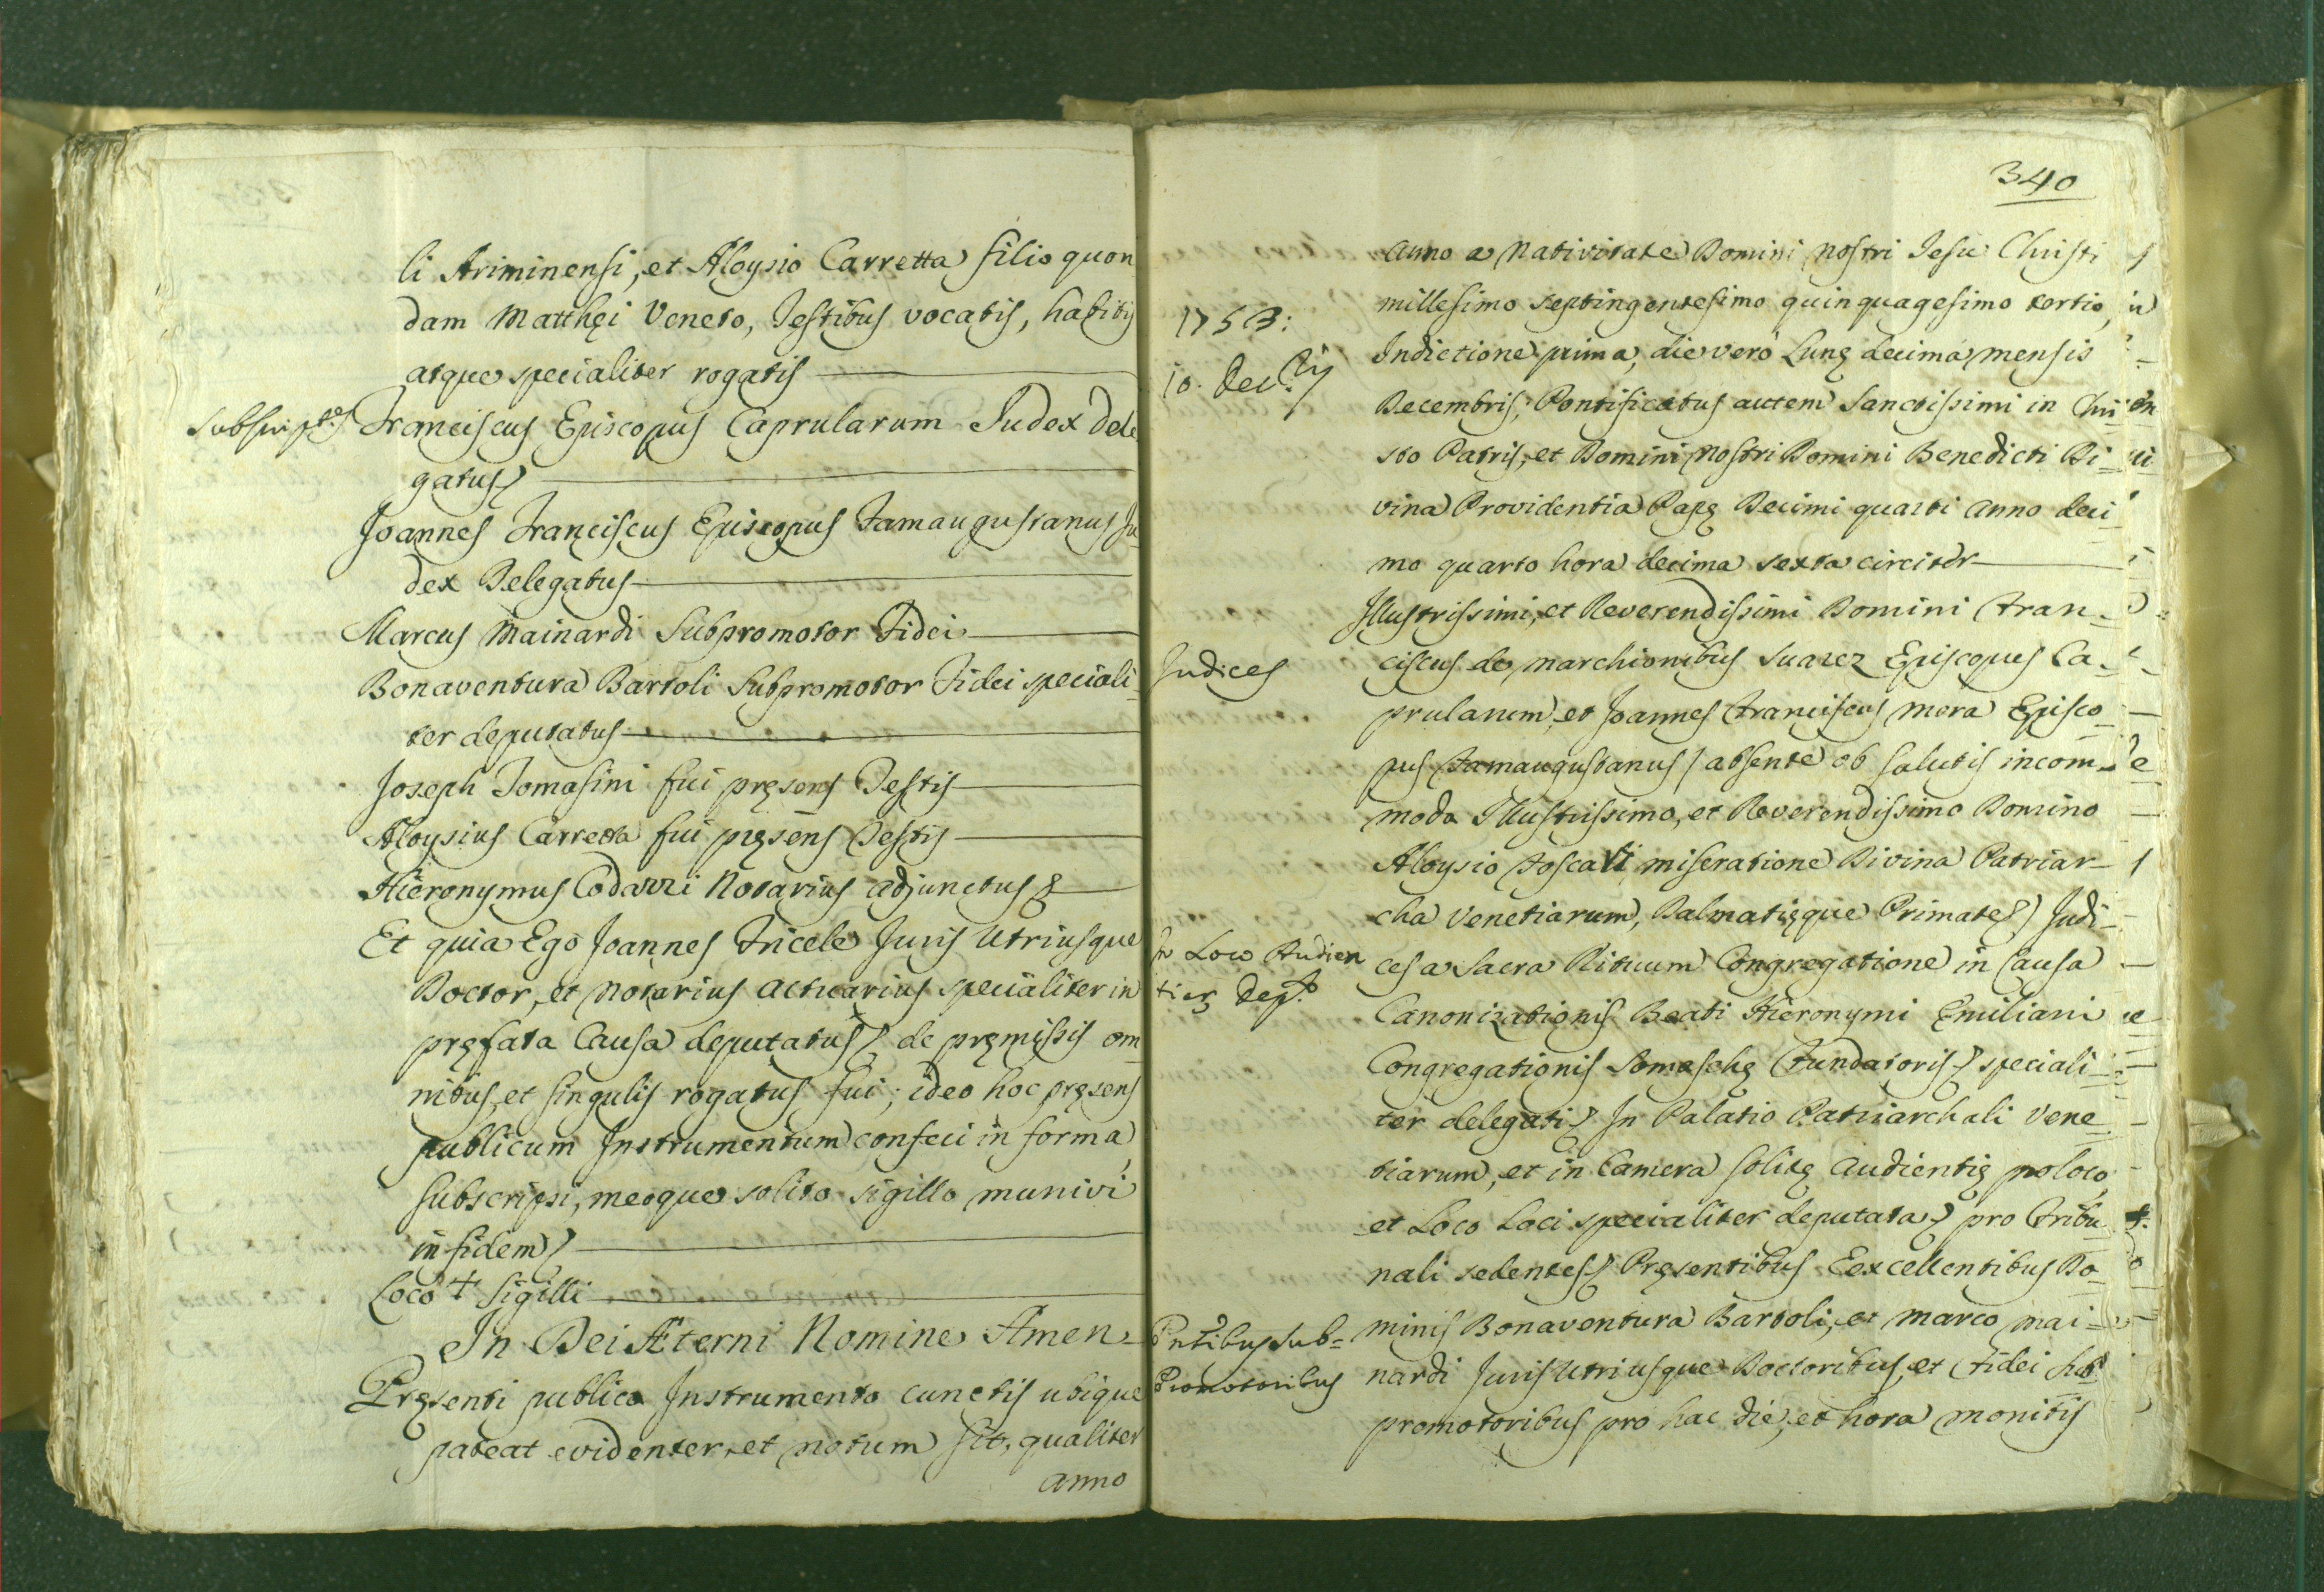 li Ariminensi, et Aloysio Carretta filio quon
dam Matthęi Veneto, Testibus vocatis, habitis
atque specialiter rogatis
Subscript.
Franciscus Episcopus Caprularum Judex Dele
gatus
Joannes Franciscus Episcopus Famaugustanus Ju-
dex Delegatus
Marcus Mainardi Subpromotor Fidei
Bonaventura Bartoli Subpromotor Fidei speciali-
ter deputatus
Joseph Tomasini fui pręsens Testis
Aloysius Carretta fui pręsens Testis
Hieronymus Codazzi Notarius adjunctus
Et quia Ego Joannes Fricele Juris Utriusque
Doctor, et Notarius Actuarius specialiter in
pręfata Causa deputatus de pręmissis om-
nibus, et singulis rogatus fui; ideo hoc pręsens
publicum Instrumentum confeci in forma,
subscripsi, meoque solito sigillo munivi
in fidem
Loco + Sigilli
In Dei Æterni Nomine Amen
Pręsenti publico Instrumento cunctis ubique
pateat evidenter, et notum sit, qualiter
anno
340
anno a Nativitate Domini Nostri Jesu Christi
1753:
millesimo septingentesimo quinquagesimo tertio,
10. Dec.
Indictione prima, die verò Lunę decima mensis
Decembris, Pontificatus autem Sanctissimi in Chri-
sto Patris, et Domini Nostri Domini Benedicti Di-
vina Providentia Papę Decimi quarti Anno deci-
mo quarto hora decima sexta circiter
Illustrissimi, et Reverendissimi Domini Fran-
Judices
ciscus de Marchionibus Suarez Episcopus Ca-
prularum, et Joannes Franciscus Mora Episco-
pus Famaugustanus / absente ob salutis incom-
moda Illustrissimo, et Reverendissimo Domino
Aloysio Foscari miseratione Divina Patriar-
cha Venetiarum, Dalmatięque Primate) Judi-
In Loco Audien
tię Dep.
ces a Sacra Rituum Congregatione in Causa
Canonizationis Beati Hieronymi Emiliani
Congregationis Somaschę Fundatoris speciali-
ter delegati In Palatio Patriarchali Vene-
tiarum, et in Camera solitę Audientię pro loco,
et Loco Loci specialiter deputata pro Tribu-
nali sedentes Pręsentibus Excellentibus Do-
Pntibus Sub-
Promotoribus
minis Bonaventura Bartoli, et Marco Mai-
nardi Juris Utriusque Doctoribus, et Fidei Sub
promotoribus pro hac die, et hora monitis